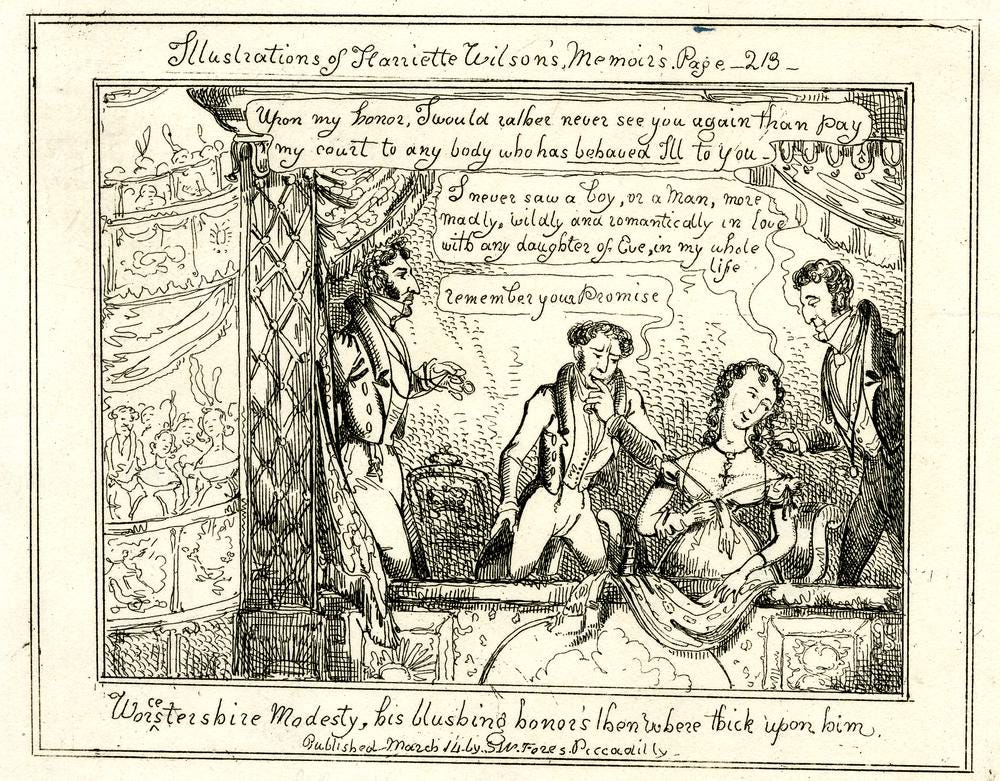 Illustrations of Harriette Wilson's, Memoir's. Page _213_
Upon my honor, I would rather never see you again than pay
my court to any body who has behaved Ill to you_
I never saw a boy, or a Man, more
madly, wildly and romantically in love
with any daughter of Eve, in my whole
life
remember your Promise
ce
Worstershire Modesty, his blushing honor's then where thick upon him.
Published March 14 by. SW. Fores. Piccadilly_